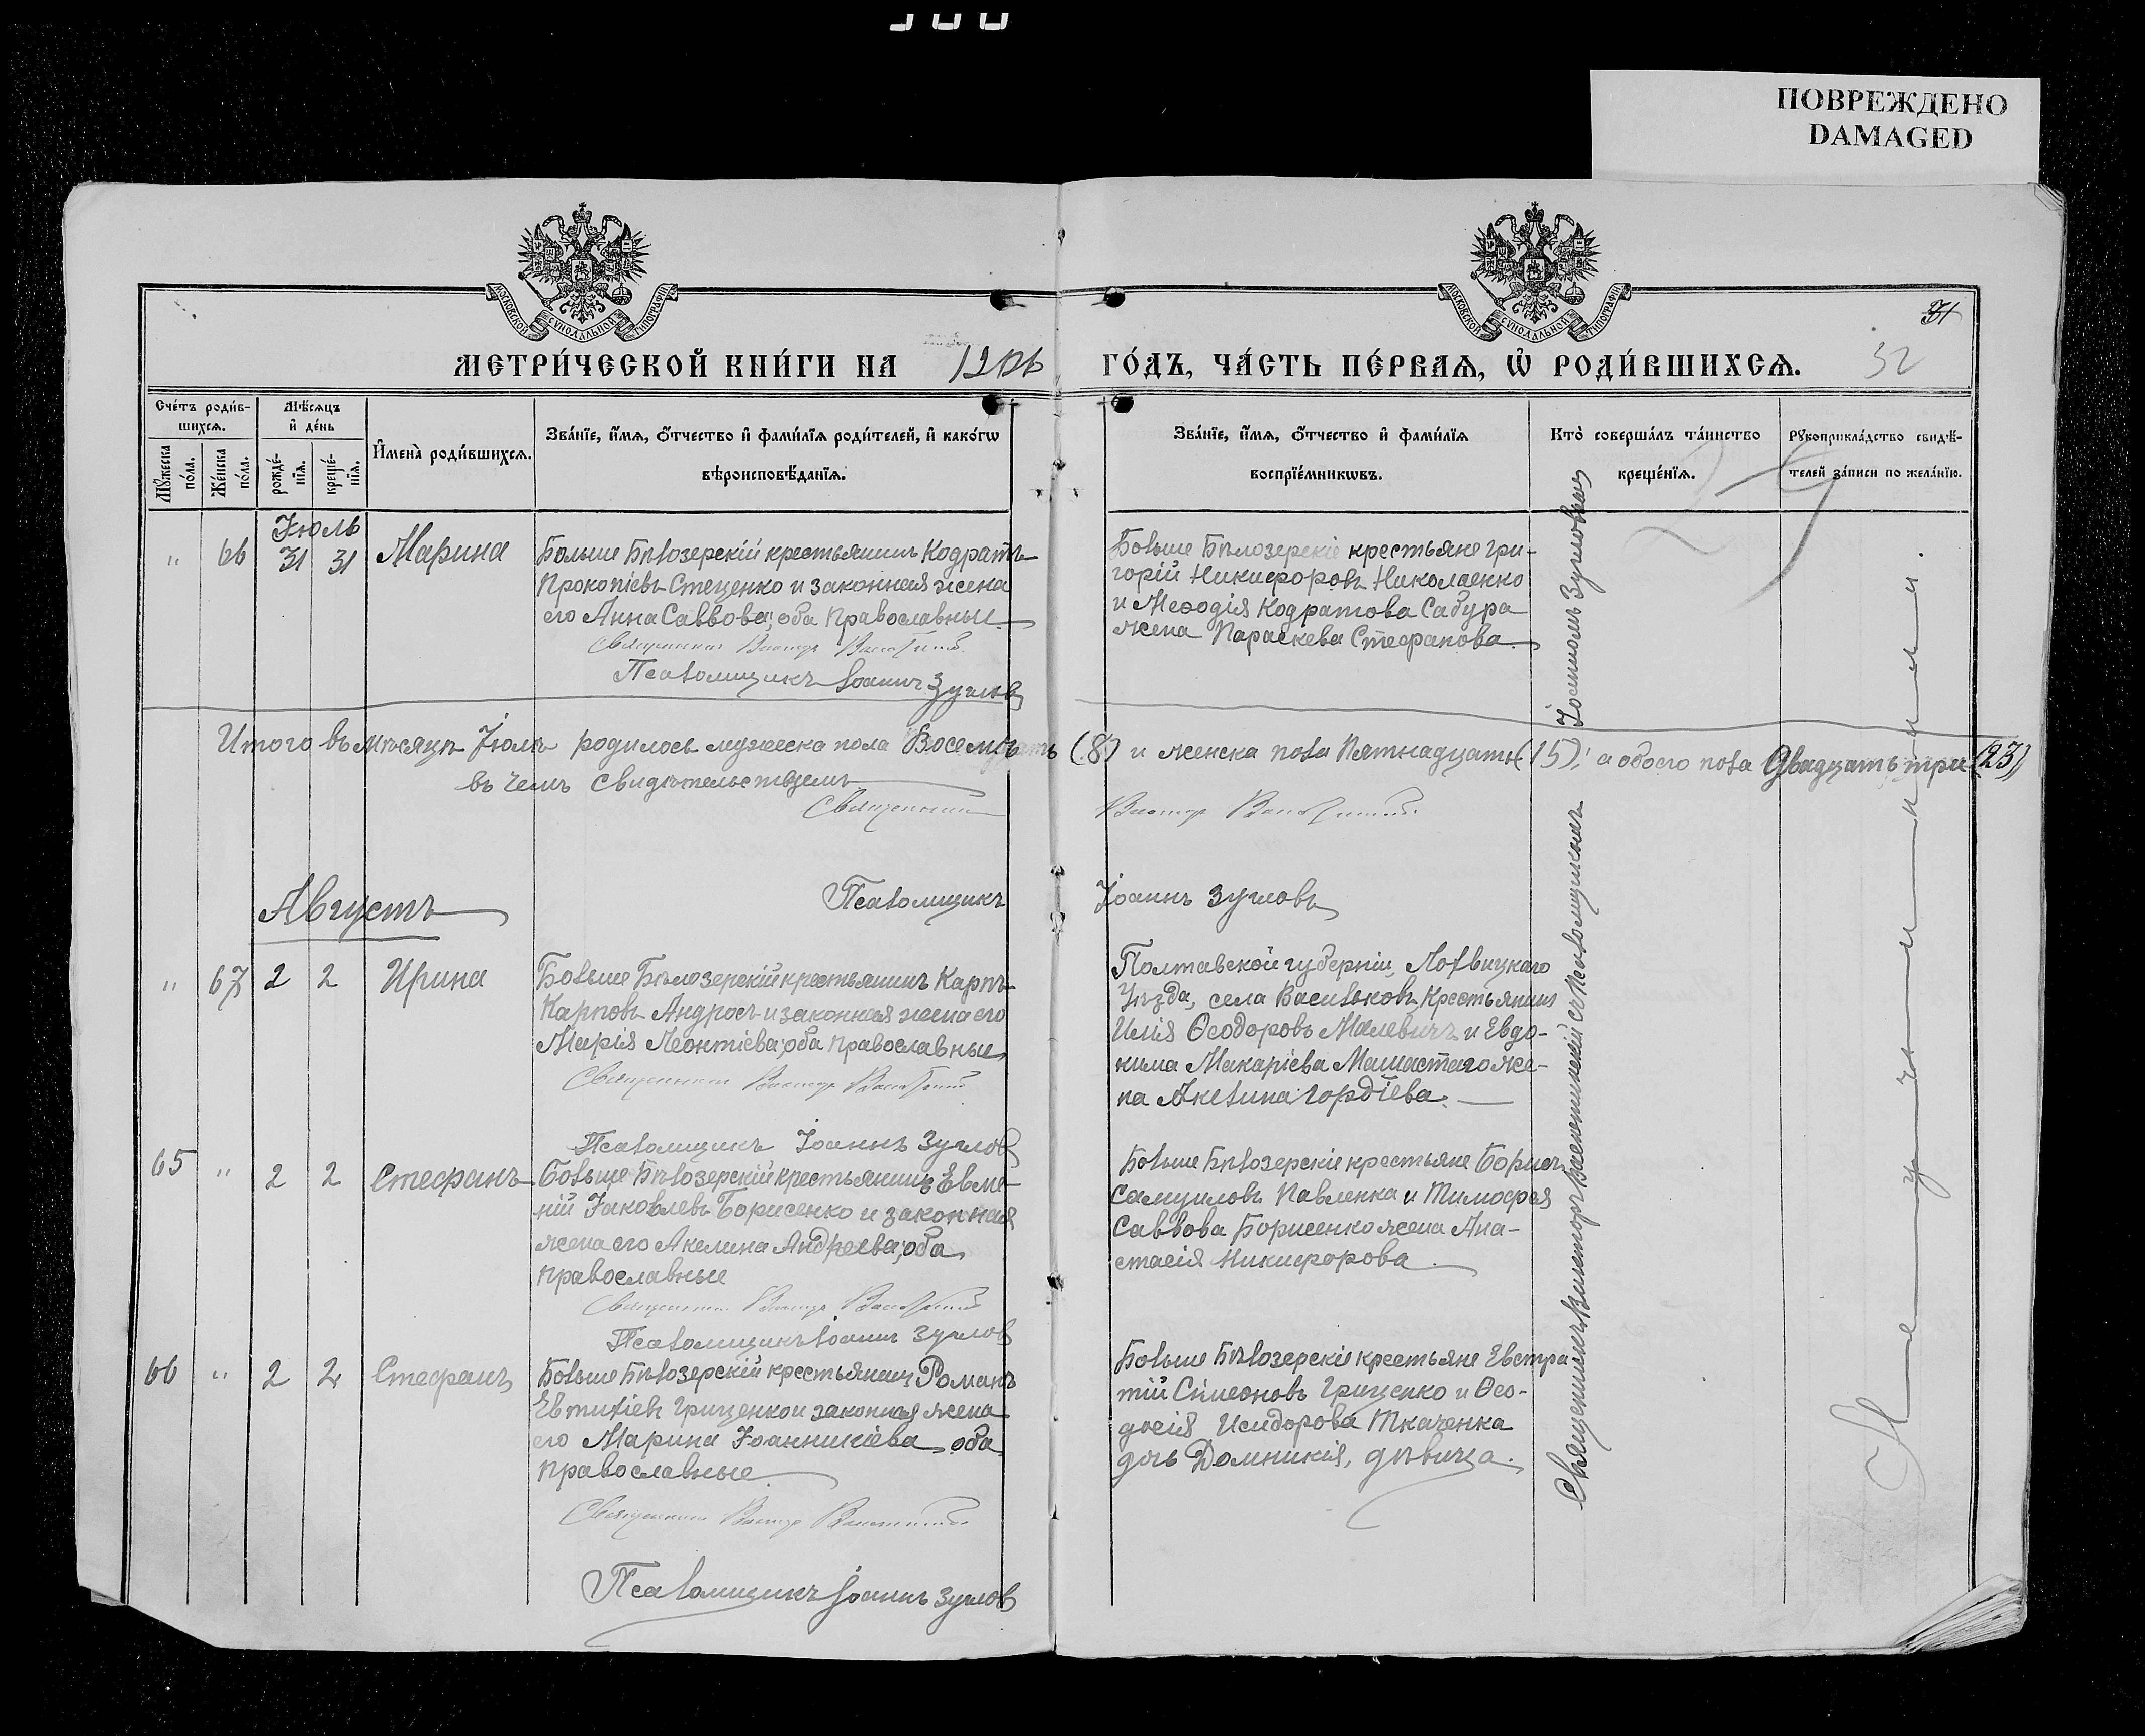 ПОВРЕЖДЕНО
DAMAGED
МОСКОВСКОЙ СѴНОДАЛЬНОЙ ТИПОГРАФІИ
МОСКОВСКОЙ СѴНОДАЛЬНОЙ ТИПОГРАФІИ
31
32
МЕТРИ́ЧЕСКОЙ КНИ́ГИ НА
ГО́ДЪ, ЧА́СТЬ ПЕ́РВАѦ, Ѡ РОДИ́ВШИХСѦ.
Сче́тъ роди́в-
шихсѧ.
Мꙋ́жеска по́ла.
Же́нска по́ла.
Мѣ́сѧцъ
и҆ де́нь
рожде́-
нїѧ.
креще́-
нїѧ.
И҆мена̀ роди́вшихсѧ.
Зва́нїе, и҆́мѧ, ѻ҆́тчество и҆ фами́лїѧ роди́телей, и҆ како́гѡ
вѣроисповѣ́данїѧ.
Зва́нїе, и҆́мѧ, ѻ҆́тчество и҆ фами́лїѧ
воспрїе́мникѡвъ.
Кто̀ соверша́лъ та́инство
креще́нїѧ.
Рꙋкоприкла́дство свидѣ́-
телей за́писи по жела́нїю.
Іюль
" 66 31 31 Марина
Больше Бѣлозерскій крестьянинъ Кодратъ
Прокопіевъ Стеценко и законная жена
его Анна Саввова; оба Православные
Священникъ Викторъ
Псаломщикъ Іоаннъ Зугловъ
Больше Бѣлозерскіе крестьяне Гри-
горій Никифоровъ Николаенко
и Меѳодія Кодратова Сабура
жена Параскева Стефанова
Итого въ мѣсяцѣ Іюлѣ родилось мужеска пола Восемь (8) и женска пола Пятнадцать (15); а обоего пола Двадцать три (23)
въ чемъ свидѣтельствуемъ
Священникъ Викторъ
Псаломщикъ Іоаннъ Зугловъ
Августъ
" 67 2 2 Ирина
Больше Бѣлозерскій крестьянинъ Карпъ
Карповъ Андросъ и законная жена его
Марія Леонтіева; оба православные
Священникъ Викторъ
Псаломщикъ Іоаннъ Зуглов
Полтавской губерніи, Лохвицкаго
Уѣзда, села Васильковъ Крестьянинъ
Илія Ѳеодоровъ Малевичъ и Евдо-
кима Макаріева Машастаго же-
на Акелина Гордіева.
65 " 2 2 Стефанъ
Больше Бѣлозерскій крестьянинъ Евме-
ній Іаковлевъ Борисенко и законная
жена его Акелина Андреева; оба
православные
Священникъ Викторъ
Псаломщикъ Іоаннъ Зуглов
Больше Бѣлозерскіе крестьяне Борисъ
Самуиловъ Павленка и Тимофея
Саввова Борисенко жена Ана-
стасія Никифорова
66 " 2 2 Стефанъ
Больше Бѣлозерскій крестьянинъ Романъ
Евтихіевъ Гриценко и законная жена
его Марина Іоанникіева, оба
православные
Священникъ Викторъ
Псаломщикъ Іоаннъ Зуглов
Больше Бѣлозерскіе крестьяне Евстра
тій Симеоновъ Гриценко и Ѳео-
досія Исидорова Ткаченка
дочь Домникія, дѣвица.
Священникъ Викторъ съ Псаломщикомъ Іоанномъ Зугловымъ